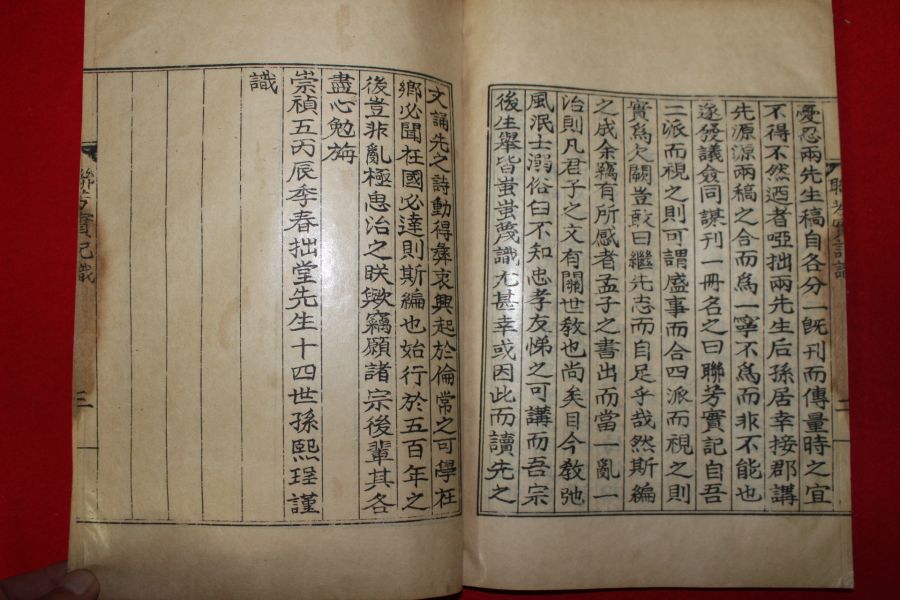 憂忍兩先生稿自各分一旣刊而傳量時之宜
不得不然迺者啞拙兩先生后孫居幸接郡講
先源源兩稿之合而爲一寧不爲而非不能也
遂發議僉同謀刊一冊名之曰聯芳實記自吾
二派而視之則可謂盛事而合四派而視之則
實爲欠闕豈敢曰繼先志而自足乎哉然斯編
之成余竊有所感者孟子之書出而當一亂一
治則凡君子之文有關世敎也尚矣目今敎弛
風泯士溺俗臼不知忠孝友悌之可講而吾宗
後生擧皆蚩蚩蔑識尤甚幸或因此而讀先之
聯芳實記識
二
文誦先之詩動得彛衷興起於倫常之可學在
鄉必聞在國必達則斯編也始行於五百年之
後豈非亂極思治之眹歟竊願諸宗後輩其各
盡心勉旃
崇禎五丙辰季春拙堂先生十四世孫熙瑆謹
識
聯芳實記識
三